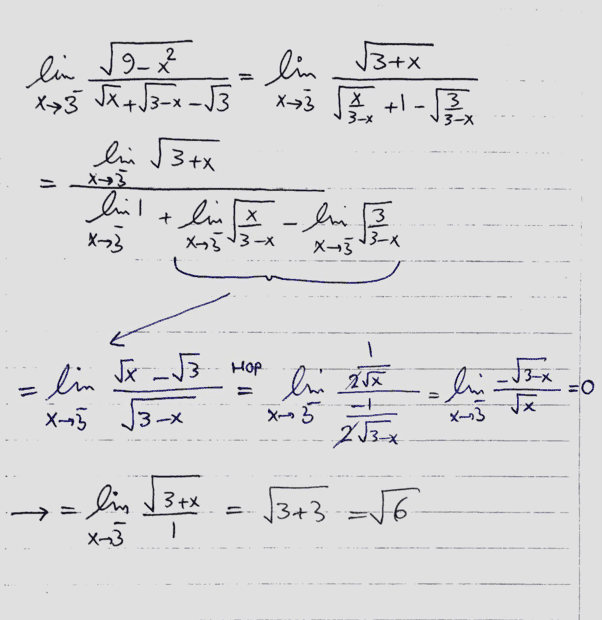 lim x→3⁻ √(9-x²) / (√x + √(3-x) - √3) = lim x→3⁻ √(3+x) / (√(x/(3-x)) + 1 - √(3/(3-x)))
= lim x→3⁻ √(3+x) / (lim x→3⁻ 1 + lim x→3⁻ √(x/(3-x)) - lim x→3⁻ √(3/(3-x)))
= lim x→3⁻ (√x - √3) / √(3-x) HOP = lim x→3⁻ (1/(2√x)) / (-1/(2√(3-x))) = lim x→3⁻ -√(3-x) / √x = 0
→ = lim x→3⁻ √(3+x) / 1 = √(3+3) = √6